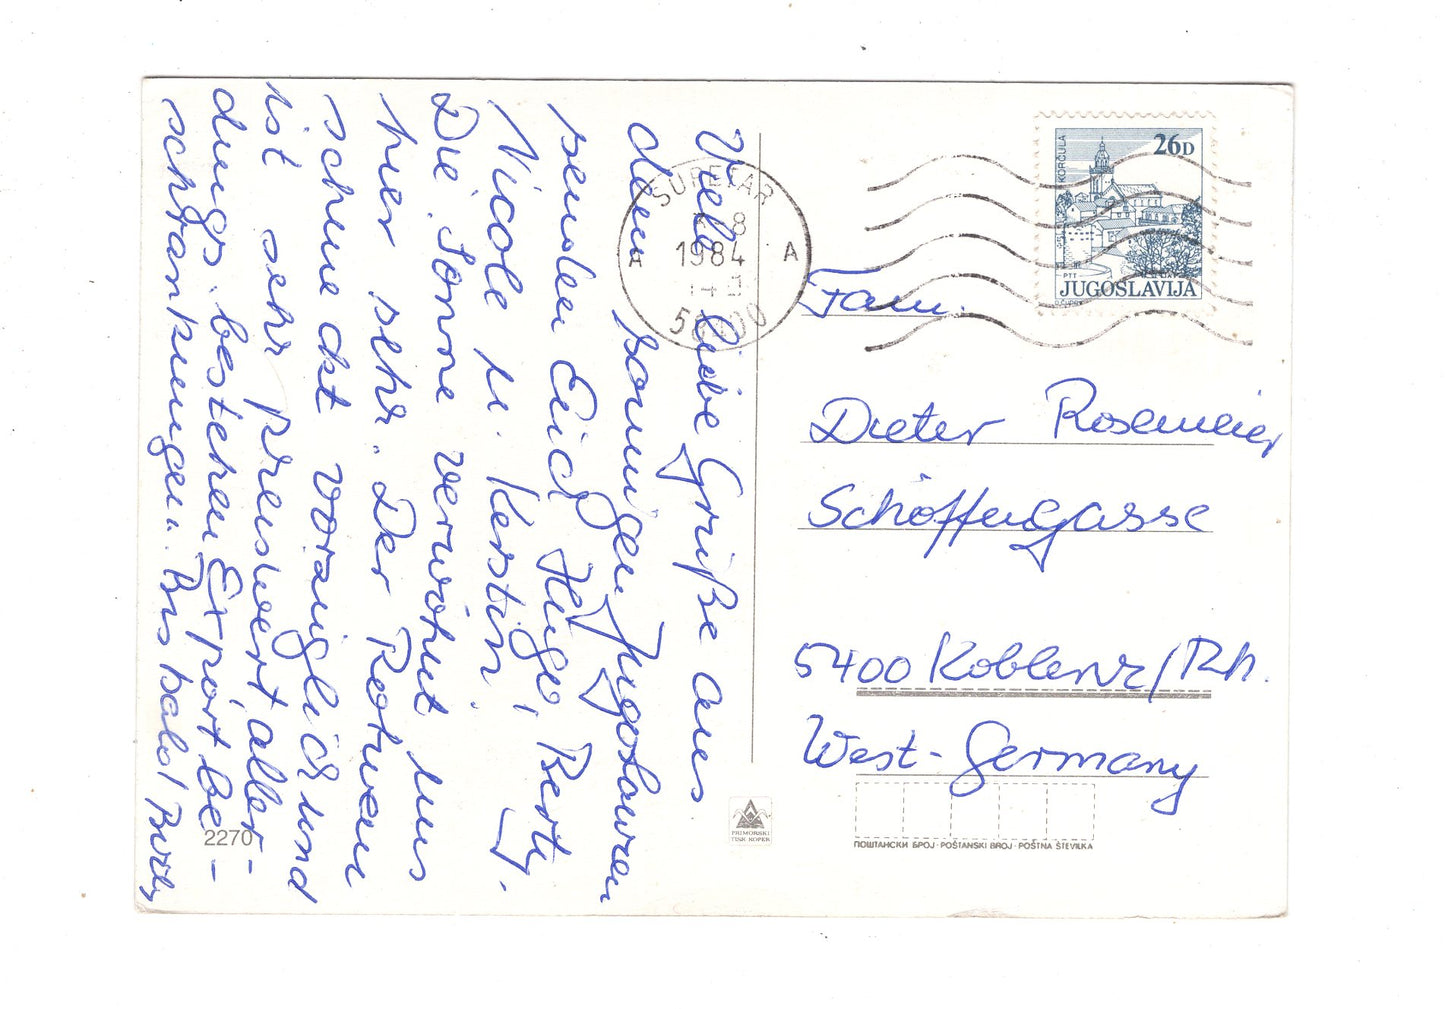 Viele liebe Grüße aus
dem sonnigen Jugoslawien
senden Euch Hugo, Berty,
Nicole u. Kerstin.
Die Sonne verwöhnt uns
hier sehr. Der Rotwein
schmeckt vorzüglich und
ist sehr preiswert, aller-
dings bestehen Exportbe-
schränkungen. Bis bald!
2270
SUPETAR
-8
1984
A A
PRIMORSKI
TISK KOPER
KORČULA
26D
PTT
JUGOSLAVIJA
Fam.
Dieter Rosemeier
Schöffengasse
5400 Koblenz/Rh.
West-Germany
ПОШТАНСКИ БРОЈ · POŠTANSKI BROJ · POŠTNA ŠTEVILKA